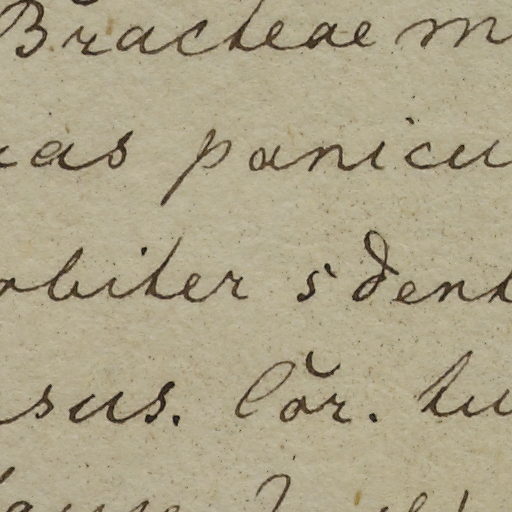 Bracteae m
as panicu
obiter 5 dent
sus. Cor. tu